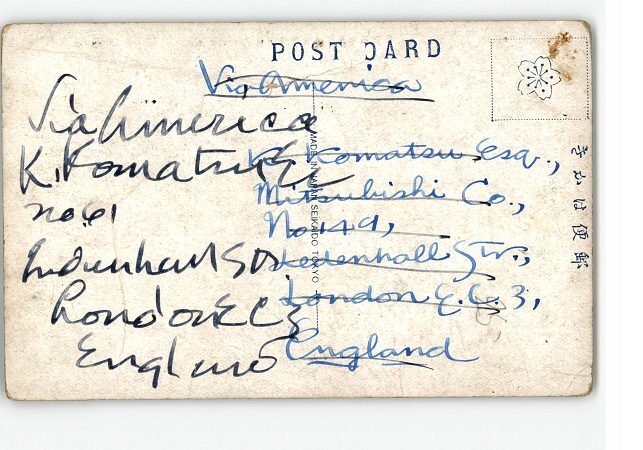 POST CARD
Via America
Via America
K. Komatsu Esq
No 61
Leadenhall Str
London E C 3
England
K. Komatsu Esq.,
Mitsubishi Co.,
No 149,
Leadenhall Str.,
London E.C. 3,
England
MADE IN JAPAN SEIKAIDO TOKYO
きがは便郵